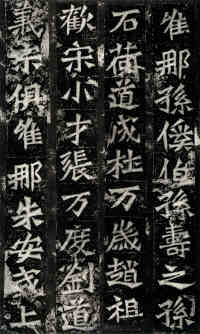 唯那孫傒伯孫壽之孫
石荀道成杜万歲趙祖
歡宋小才張万度劉道
義俱唯那朱安上